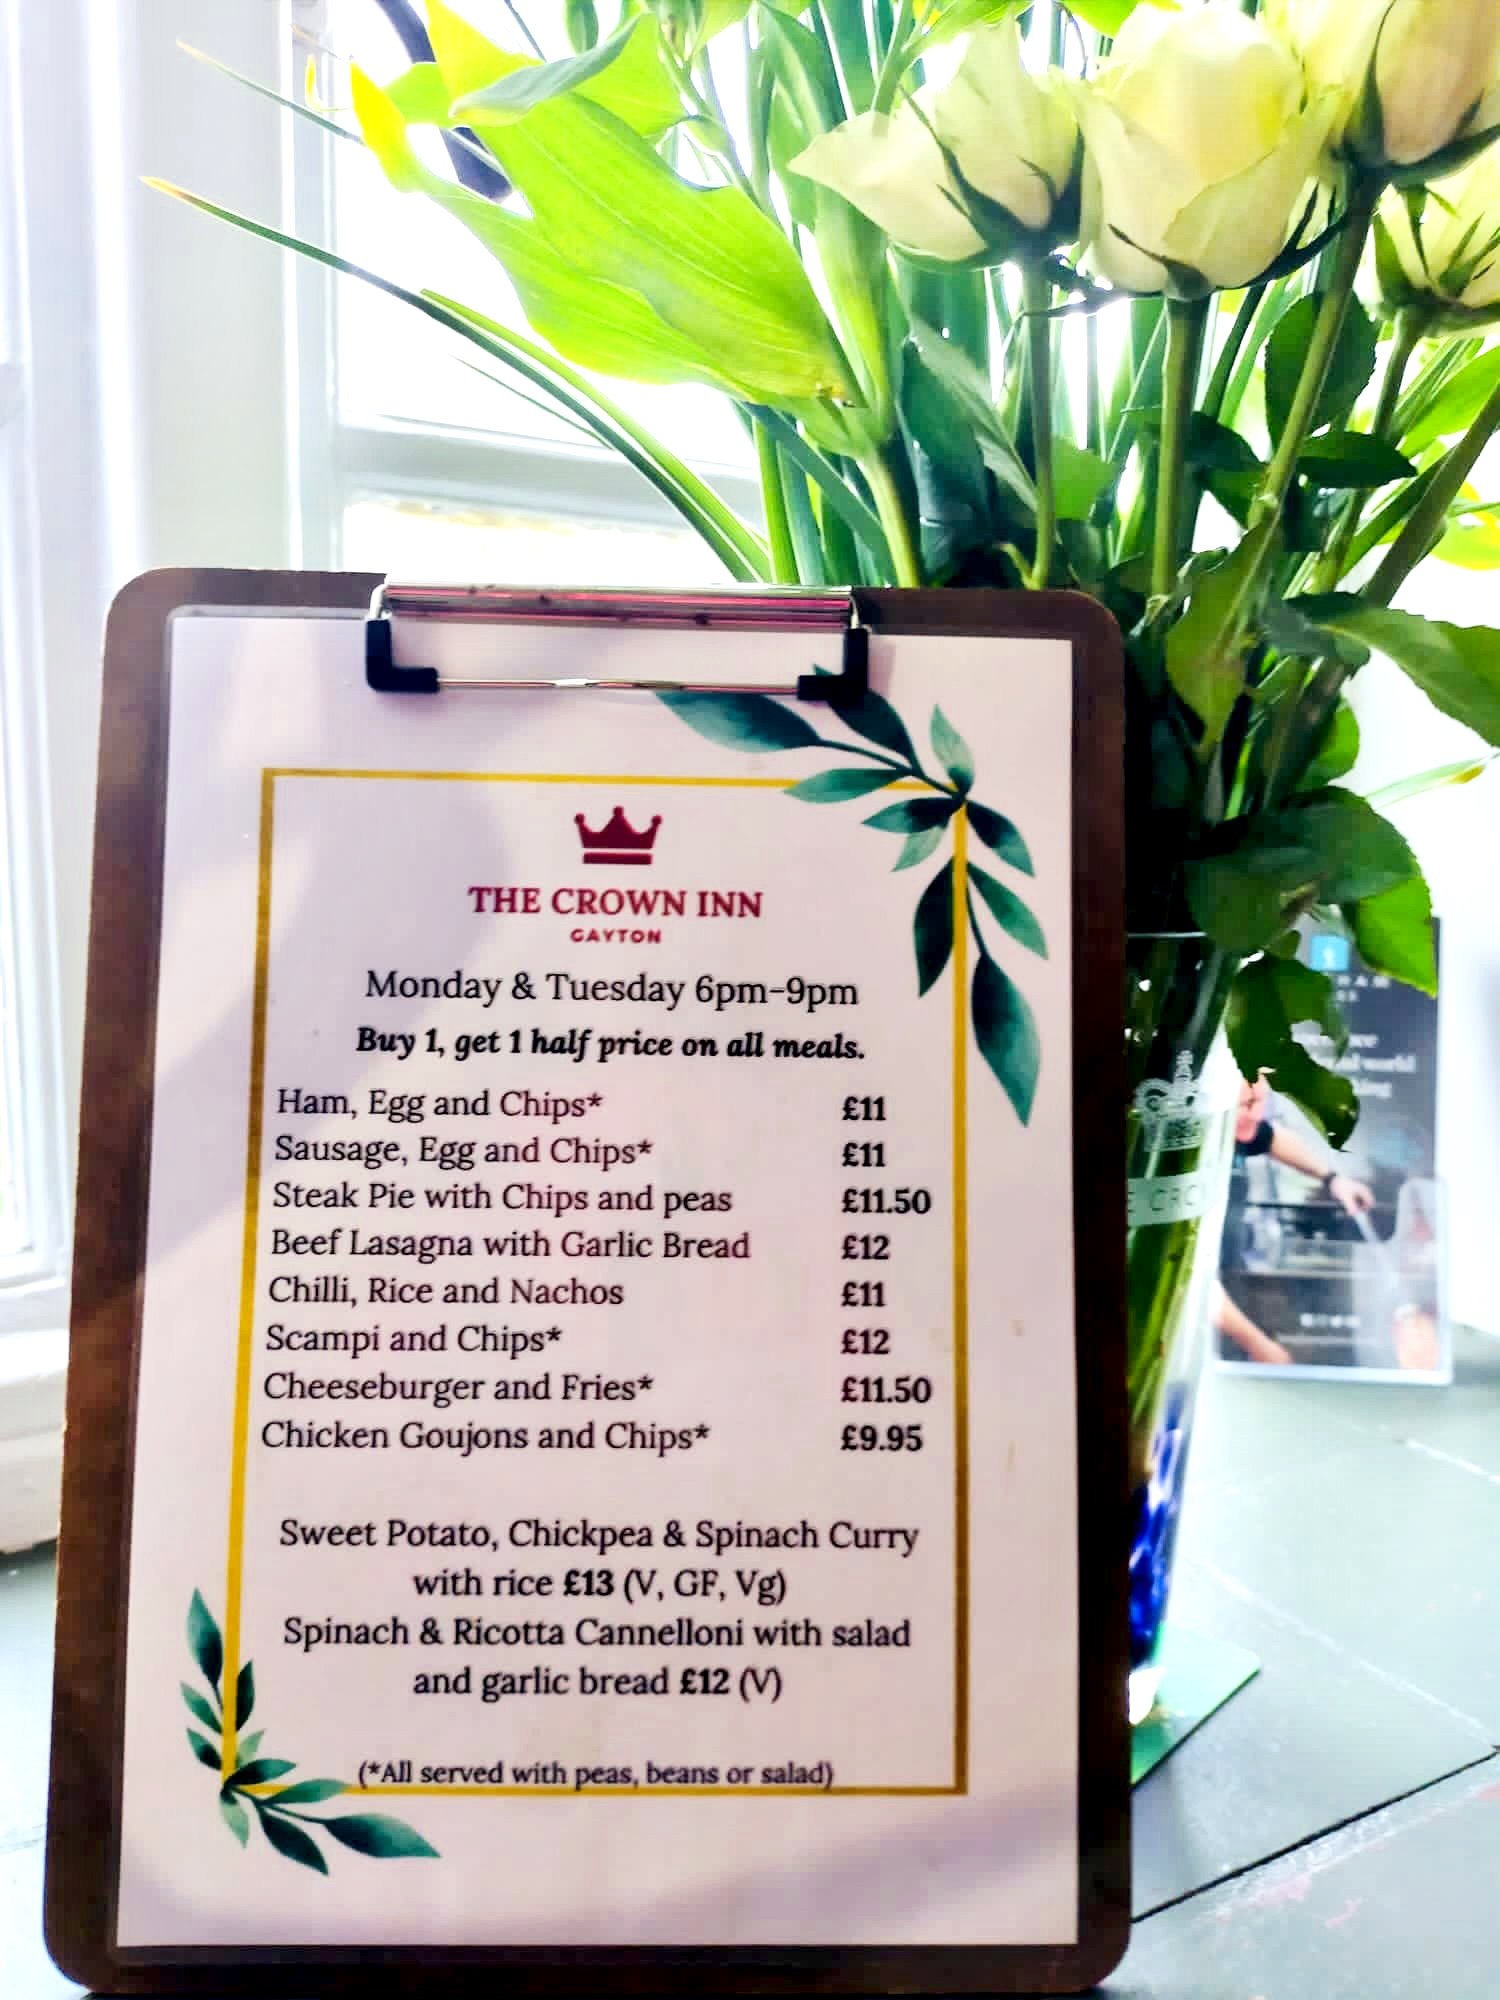 THE CROWN INN
GAYTON
Monday & Tuesday 6pm-9pm
Buy 1, get 1 half price on all meals.
Ham, Egg and Chips* £11
Sausage, Egg and Chips* £11
Steak Pie with Chips and peas £11.50
Beef Lasagna with Garlic Bread £12
Chilli, Rice and Nachos £11
Scampi and Chips* £12
Cheeseburger and Fries* £11.50
Chicken Goujons and Chips* £9.95
Sweet Potato, Chickpea & Spinach Curry
with rice £13 (V, GF, Vg)
Spinach & Ricotta Cannelloni with salad
and garlic bread £12 (V)
(*All served with peas, beans or salad)
world